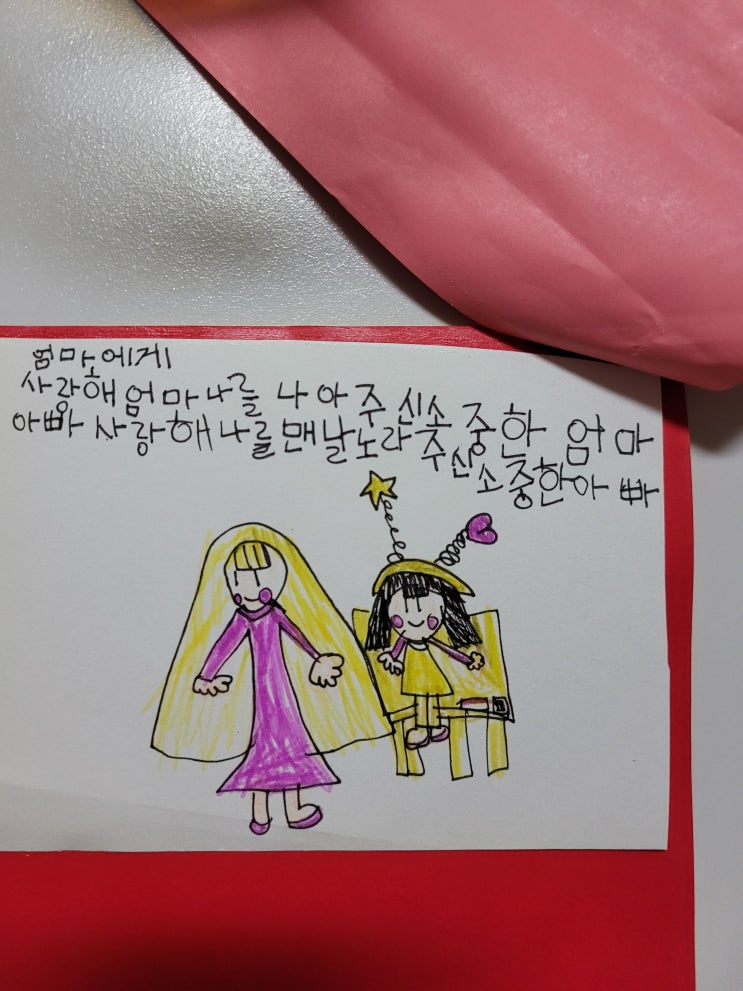 엄마에게
사랑해 엄마 나를 나아 주신 소중한 엄마
아빠 사랑해 나를 맨날 노라 주신 소중한 아빠